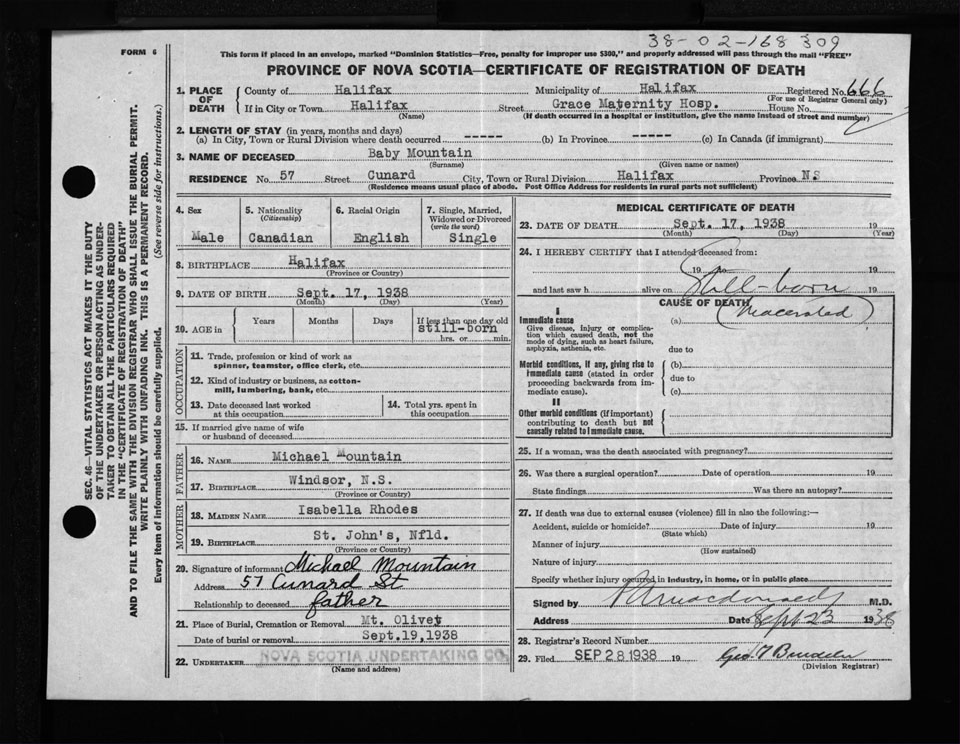 38-02-168 309
FORM 6
This form if placed in an envelope, marked "Dominion Statistics—Free, penalty for improper use $300," and properly addressed will pass through the mail "FREE"
PROVINCE OF NOVA SCOTIA—CERTIFICATE OF REGISTRATION OF DEATH
1. PLACE OF DEATH
County of Halifax Municipality of Halifax Registered No. 666
(For use of Registrar General only)
If in City or Town Halifax Street Grace Maternity Hosp. House No.
(Name) (If death occurred in a hospital or institution, give the name instead of street and number)
2. LENGTH OF STAY (in years, months and days)
(a) In City, Town or Rural Division where death occurred ----- (b) In Province ----- (c) In Canada (if immigrant)
3. NAME OF DECEASED Baby Mountain
(Surname) (Given name or names)
RESIDENCE No. 57 Street Cunard City, Town or Rural Division Halifax Province N.S
(Residence means usual place of abode. Post Office Address for residents in rural parts not sufficient)
4. Sex
Male
5. Nationality
(Citizenship)
Canadian
6. Racial Origin
English
7. Single, Married, Widowed or Divorced
(write the word)
Single
8. BIRTHPLACE Halifax
(Province or Country)
9. DATE OF BIRTH Sept. 17, 1938
(Month) (Day) (Year)
10. AGE in
Years Months Days If less than one day old
still-born
hrs. or min.
OCCUPATION
11. Trade, profession or kind of work as
spinner, teamster, office clerk, etc.
12. Kind of industry or business, as cotton-
mill, lumbering, bank, etc.
13. Date deceased last worked
at this occupation
14. Total yrs. spent in
this occupation
15. If married give name of wife
or husband of deceased
FATHER
16. NAME Michael Mountain
17. BIRTHPLACE Windsor, N.S.
(Province or Country)
MOTHER
18. MAIDEN NAME Isabella Rhodes
19. BIRTHPLACE St. John's, Nfld.
(Province or Country)
20. Signature of informant Michael Mountain
Address 57 Cunard St
Relationship to deceased father
21. Place of Burial, Cremation or Removal Mt. Olivet
Date of burial or removal Sept.19,1938
22. UNDERTAKER NOVA SCOTIA UNDERTAKING CO.
(Name and address)
MEDICAL CERTIFICATE OF DEATH
23. DATE OF DEATH Sept. 17, 1938 19
(Month) (Day) (Year)
24. I HEREBY CERTIFY that I attended deceased from:
19 to 19
and last saw h alive on 19
Still-born
CAUSE OF DEATH
I
Immediate cause (a) (Macerated)
Give disease, injury or complica-
tion which caused death, not the
mode of dying, such as heart failure,
asphyxia, asthenia, etc.
due to
Morbid conditions, if any, giving rise to (b)
immediate cause (stated in order
proceeding backwards from im-
mediate cause).
due to
(c)
II
Other morbid conditions (if important)
contributing to death but not
causally related to immediate cause.
25. If a woman, was the death associated with pregnancy?
26. Was there a surgical operation? Date of operation 19
State findings Was there an autopsy?
27. If death was due to external causes (violence) fill in also the following:—
Accident, suicide or homicide? Date of injury 19
(State which)
Manner of injury
(How sustained)
Nature of injury
Specify whether injury occurred in industry, in home, or in public place
Signed by M.D.
Address Date Sept 23 1938
28. Registrar's Record Number
29. Filed SEP 28 1938 19
(Division Registrar)
SEC. 46—VITAL STATISTICS ACT MAKES IT THE DUTY
OF THE UNDERTAKER OR PERSON ACTING AS UNDER-
TAKER TO OBTAIN ALL THE PARTICULARS REQUIRED
IN THE "CERTIFICATE OF REGISTRATION OF DEATH"
AND TO FILE THE SAME WITH THE DIVISION REGISTRAR WHO SHALL ISSUE THE BURIAL PERMIT.
WRITE PLAINLY WITH UNFADING INK. THIS IS A PERMANENT RECORD.
Every item of information should be carefully supplied. (See reverse side for instructions.)